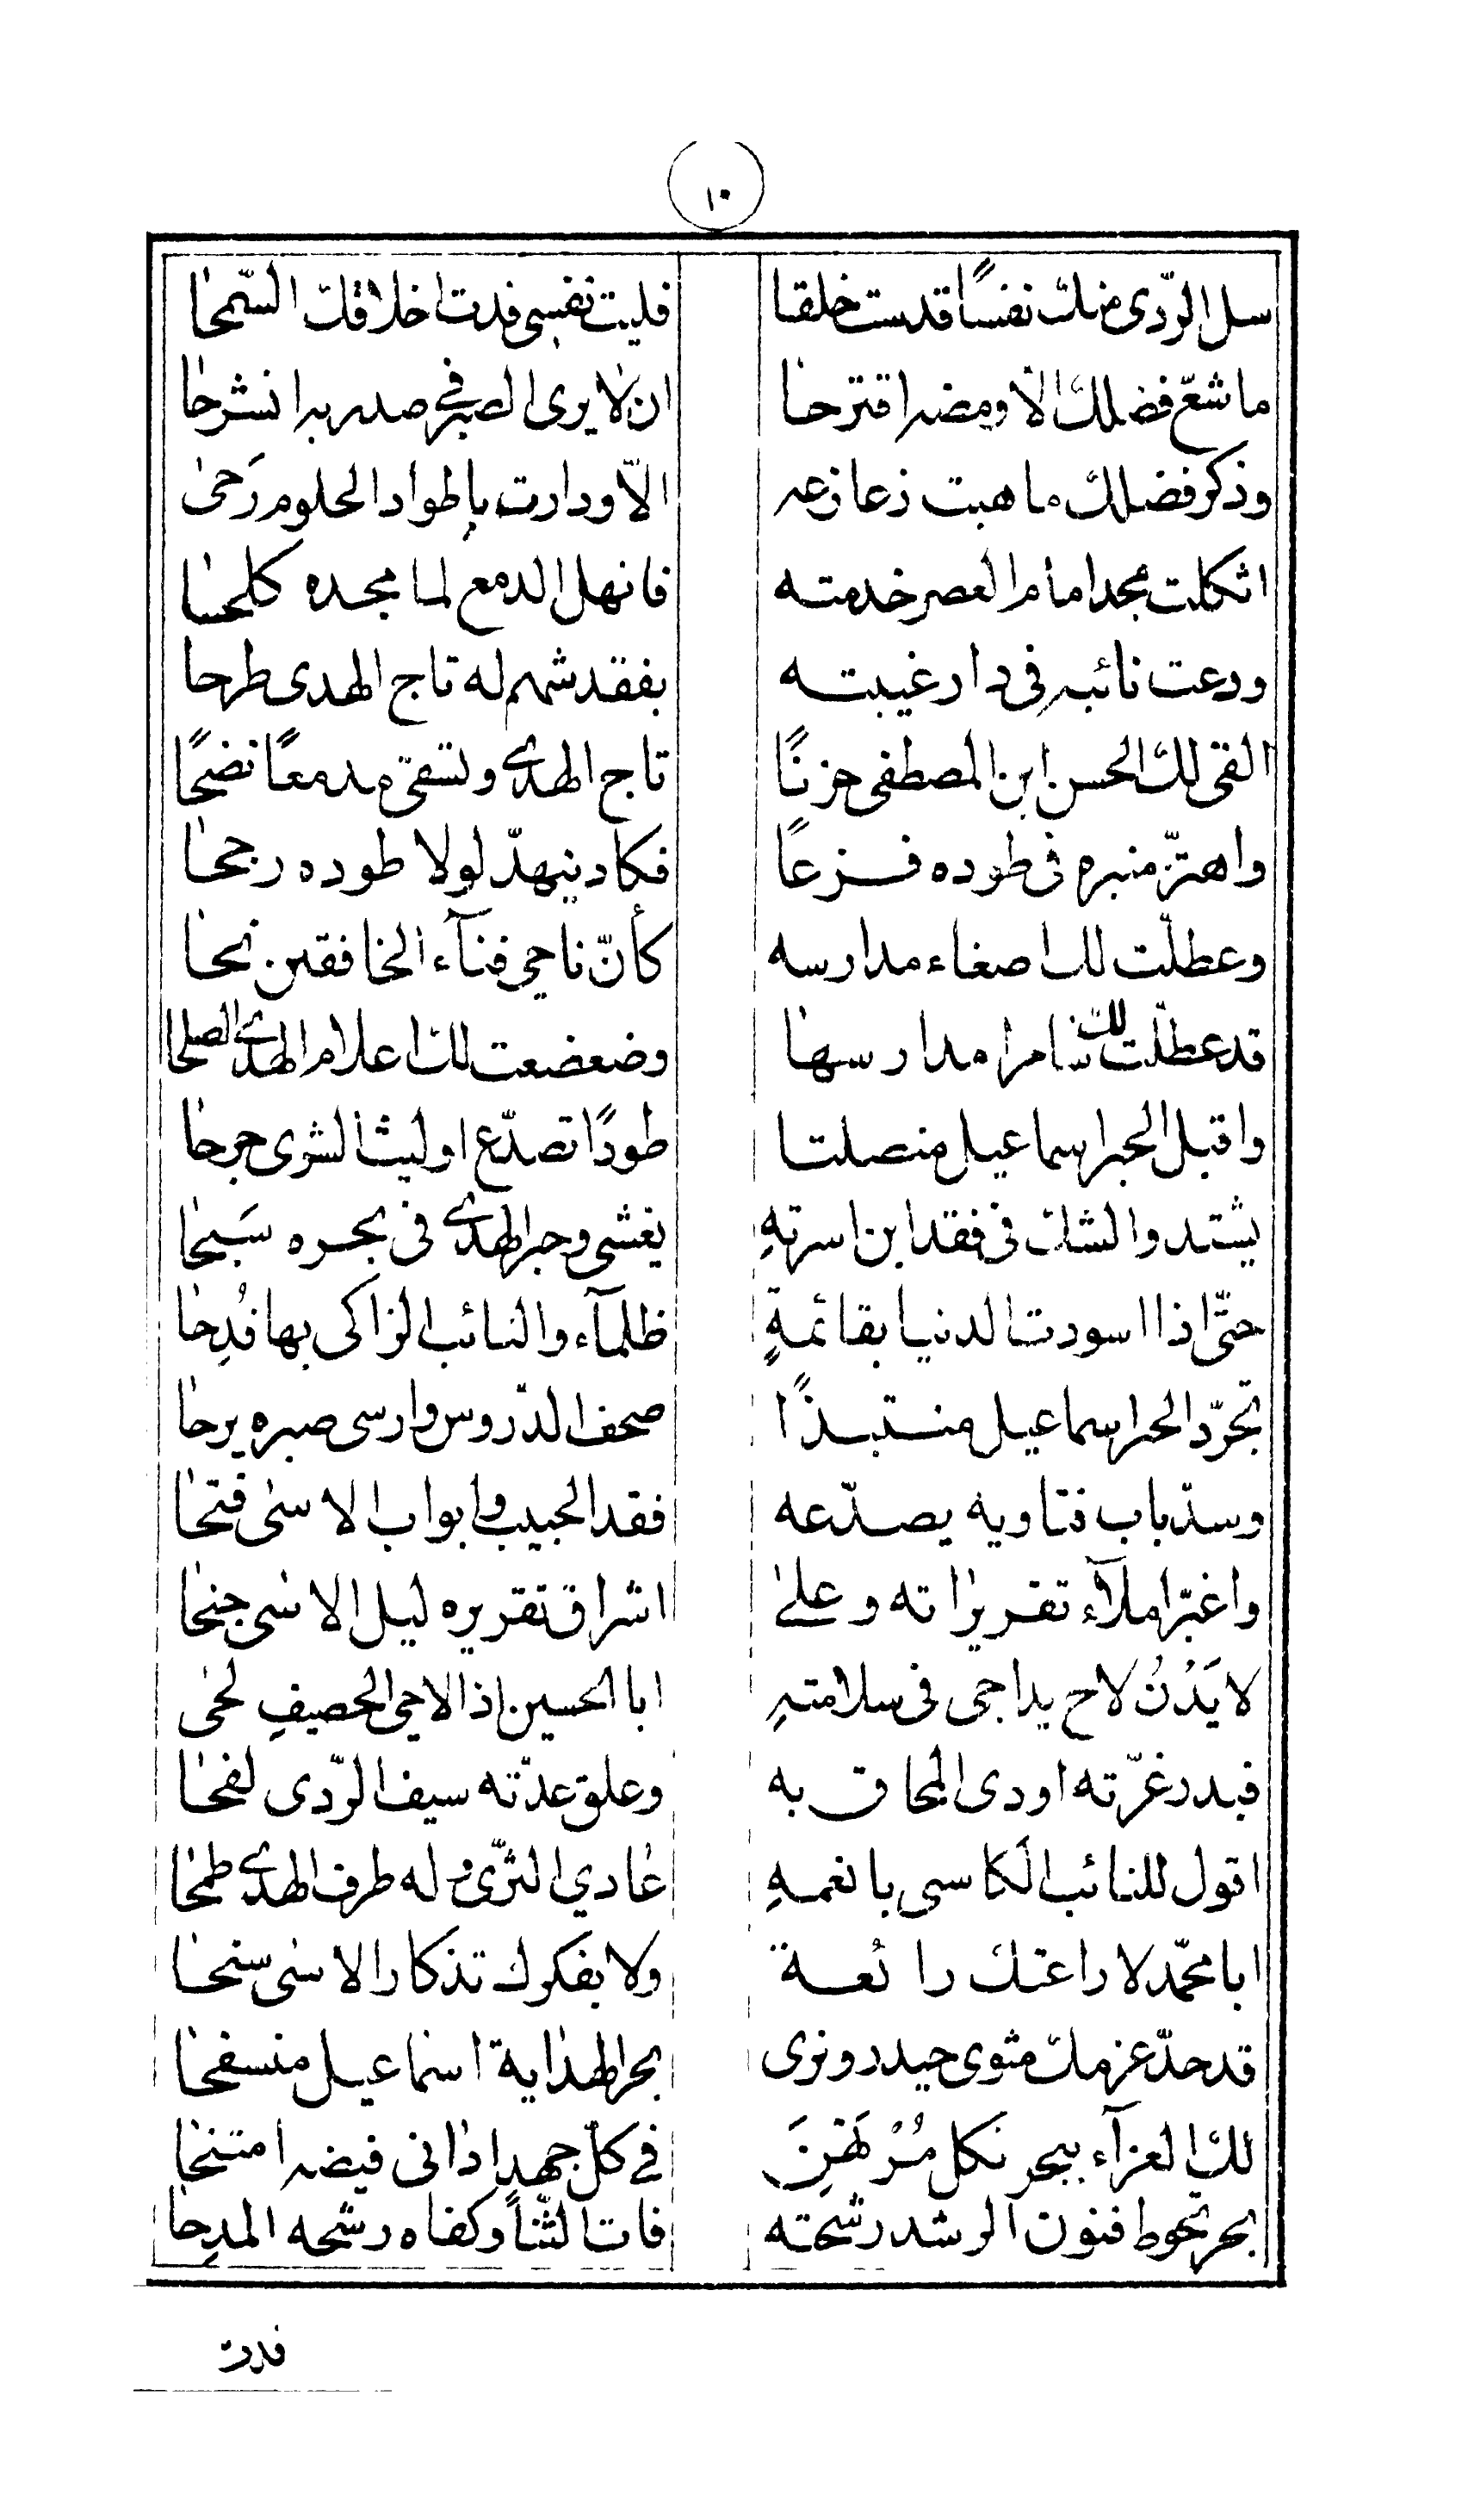 ١٠
سل الرّدى منك نفسًا قدست خلقا فليت نفسى فدت اخلاقك السّمحا
ما شعّ فضلك الا ومضه اقترحا ان لا يرى الصبر فى صدر به انشرحا
وذكر فضلك ما هبت زعازعه الاّ ودارت باطواد الحلوم رَحىٰ
اثكلت مجد امام العصر خدمته فانهل الدمع لما مجده كلحا
ودعت نائبه فى دار غيبته بفقد شهم له تاج الهدى طرحا
القى لك الحسن ابن المصطفى حزنًا تاج الهدى وتسقى مدمعًا نضحًا
واهتزّ منبره فى طوده فزعًا فكاد ينهدّ لولا طوده رجحا
وعطلّت لك اصغاء مدارسه كأنّ ناحى فنآء الخافقين نحا
قد عطلّت لك سامرا مدارسها وضعضعت لك اعلام الهدى الصلحا
واقبل الحبر اسماعيل منصلتا طودًا تصدّع او ليث الشرى جرحا
يشتد والشك فى فقد ابن اسرتهِ يغشى وحبر الهدى فى بحره سَبحا
حتّى اذا اسودت الدنيا بقائمةٍ ظلمآء والنائب الزاكى بها فُدِحا
تجرّد الحبر اسماعيل منتبذًا صحف الدّروس وارسى صبره برحا
وسدّ باب فتاويه يصدّعه فقد الحبيب وابواب الاسىٰ فتحا
واغبرّ املآء تقريراته وعلىٰ اشراق تقريره ليل الاسى جنحا
لا يَدْنُ لاح يداجى فى سلامتهِ ابا الحسين اذ الاحى الحصيفِ لحى
فبدر غرّته اودى المحاق به وعلق عدّته سيف الرّدى لفحا
اقول للنائب الكاسى بانعمهِ عادي الثرّى وله طرف الهدى طمحا
ابا محمّد لا راعتك رائعة ولا بفكرك تذكار الاسى سنحا
قد حدّ عزمك مثوى حيدر ونرى بحر الهداية اسماعيل منسفحا
لك العزآء ببحر كل مُرْتَهَنٍ في كلّ جهد اذا فى فيضه امتنحا
بحر تحوط فنون الرشد رشحته فات الثّنا وكفاه رشحه المدِحا